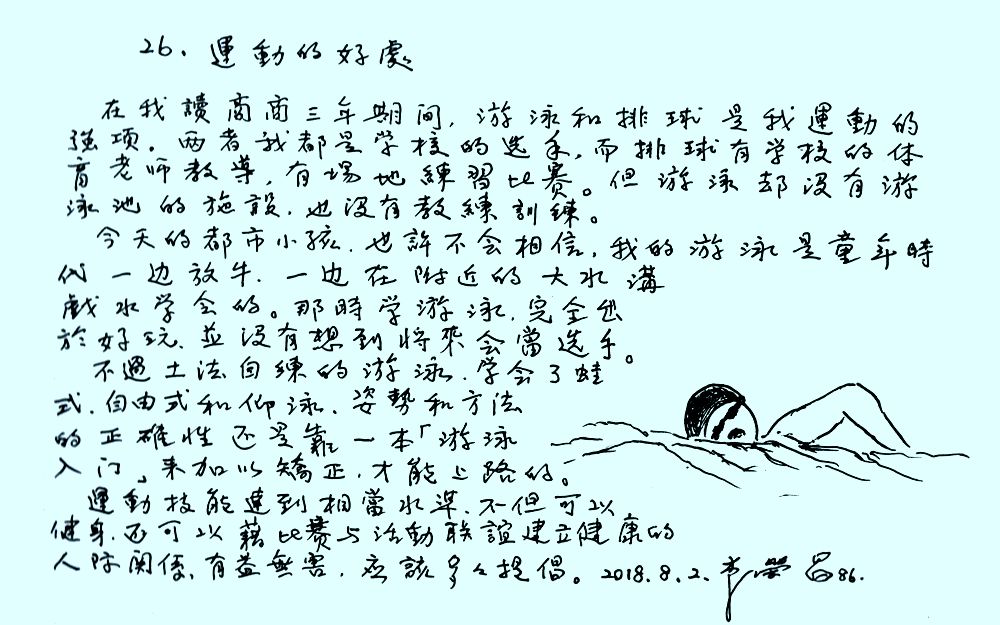 26. 運動的好處
在我讀高商三年期间, 游泳和排球是我運動的
強項。两者我都是学校的选手,而排球有学校的体
育老师教導,有場地練習比赛。但游泳却没有游
泳池的施設.也没有教練訓練。
今天的都市小孩.也許不会相信,我的游泳是童年時
代一边放牛.一边在附近的大水溝
戲水学会的。那時学游泳.完全出
於好玩.並没有想到将来会當选手。
不過土法自練的游泳.学会了蛙
式.自由式和仰泳.姿勢和方法
的正確性还是靠一本「游泳
入门」来加以矯正,才能上路的。
運動技能達到相當水準.不但可以
健身.还可以藉比赛与活動联誼建立健康的
人际関係,有益無害.应該多々提倡。2018.8.2.李榮昌86.